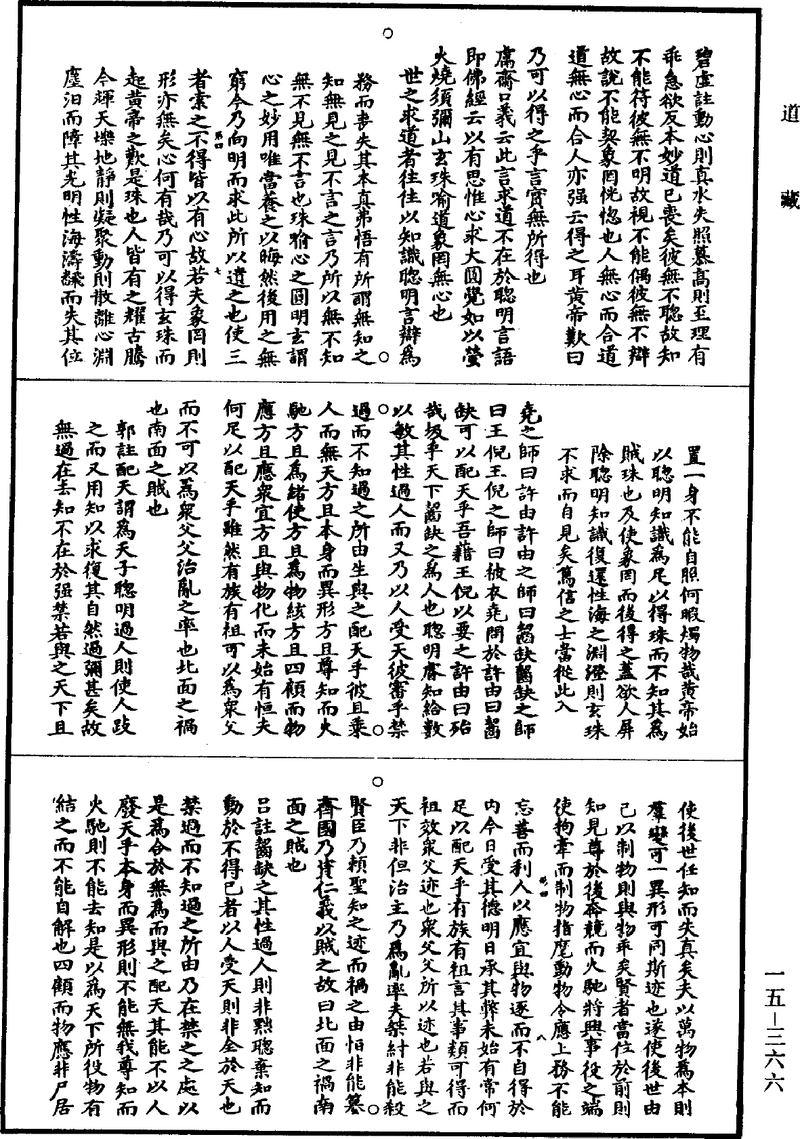 道藏
碧虛註動心則真水失照慕高則至理有
乖急欲反本妙道已喪矣彼無不聰故知
不能符彼無不明故視不能偶彼無不辯
故說不能契象罔恍惚也人無心而合道
道無心而合人亦强云得之耳黃帝歎曰
乃可以得之乎言實無所得也
鬳齋口義云此言求道不在於聰明言語
即佛經云以有思惟心求大圓覺如以螢
火燒須彌山玄珠喻道象罔無心也
世之求道者往往以知識聰明言辯為
務而喪失其本真弗悟有所謂無知之
知無見之見不言之言乃所以無不知
無不見無不言也珠喻心之圓明玄謂
心之妙用唯當養之以晦然後用之無
窮今乃向明而求此所以遺之也使三
第四
七
者索之不得皆以有心故若夫象罔則
形亦無矣心何有哉乃可以得玄珠而
起黃帝之歎是珠也人皆有之耀古騰
今輝天爍地靜則凝聚動則散離心淵
塵汩而障其光明性海濤飜而失其位
置一身不能自照何暇燭物哉黃帝始
以聰明知識為足以得珠而不知其為
賊珠也及使象罔而後得之蓋欲人屏
除聰明知識復還性海之淵澄則玄珠
不求而自見矣篤信之士當從此入
堯之師曰許由許由之師曰齧缺齧缺之師
曰王倪王倪之師曰被衣堯問於許由曰齧
缺可以配天乎吾藉王倪以要之許由曰殆
哉圾乎天下齧缺之為人也聰明睿知給數
以敏其性過人而又乃以人受天彼審乎禁
過而不知過之所由生與之配天乎彼且乘
人而無天方且本身而異形方且尊知而火
馳方且為緒使方且為物絃方且四顧而物
應方且應衆宜方且與物化而未始有恒夫
何足以配天乎雖然有族有祖可以為衆父
而不可以為衆父父治亂之率也北面之禍
也南面之賊也
郭註配天謂為天子聰明過人則使人跂
之而又用知以求復其自然過彌甚矣故
無過在去知不在於强禁若與之天下且
使後世任知而失真矣夫以萬物為本則
羣變可一異形可同斯迹也遂使後世由
己以制物則與物乖矣賢者當位於前則
知見尊於後奔競而火馳將興事役之端
使拘牽而制物指麾動物令應上務不能
第四
八
忘善而利人以應宜與物逐而不自得於
內今日受其德明日承其弊未始有常何
足以配天乎有族有祖言其事類可得而
祖效衆父迹也衆父父所以迹也若與之
天下非但治主乃為亂率夫桀紂非能殺
賢臣乃賴聖知之迹而禍之由恒非能簒
齊國乃資仁義以賊之故曰北面之禍南
面之賊也
呂註齧缺之其性過人則非黜聰棄知而
動於不得已者以人受天則非全於天也
禁過而不知過之所由乃在禁之之處以
是為合於無為而與之配天其能不以人
廢天乎本身而異形則不能無我尊知而
火馳則不能去知是以為天下所役物有
結之而不能自解也四顧而物應非尸居
一五－三六六